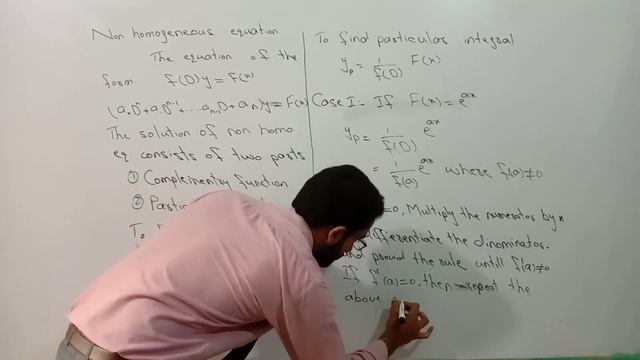 Non homogeneous equation
The equation of the
form f(D)y = F(x)
(a₀Dⁿ+a₁Dⁿ⁻¹+...aₙ₋₁D+aₙ)y=F(x)
The solution of non homo
eq consists of two parts
① Complementry function
② Partic
To
To find particular integral
yₚ = 1/f(D) F(x)
Case I:- If F(x) = e^ax
yₚ = 1/f(D) e^ax
= 1/f(a) e^ax where f(a)≠0
=0, Multiply the numerator by x
differentiate the dinominator.
and provid the rule untill f'(a)≠0
If f'(a)=0, then repeat the
above